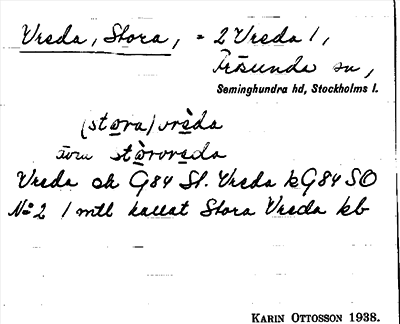 Vreda, Stora, = 2 Vreda 1,
Frösunda sn,
Seminghundra hd, Stockholms l.
(stora) vrèda
även stòrvreda
Vreda ek G84 St. Vreda kG84 SO
No 2 1 mtl kallat Stora Vreda kb
KARIN OTTOSSON 1938.